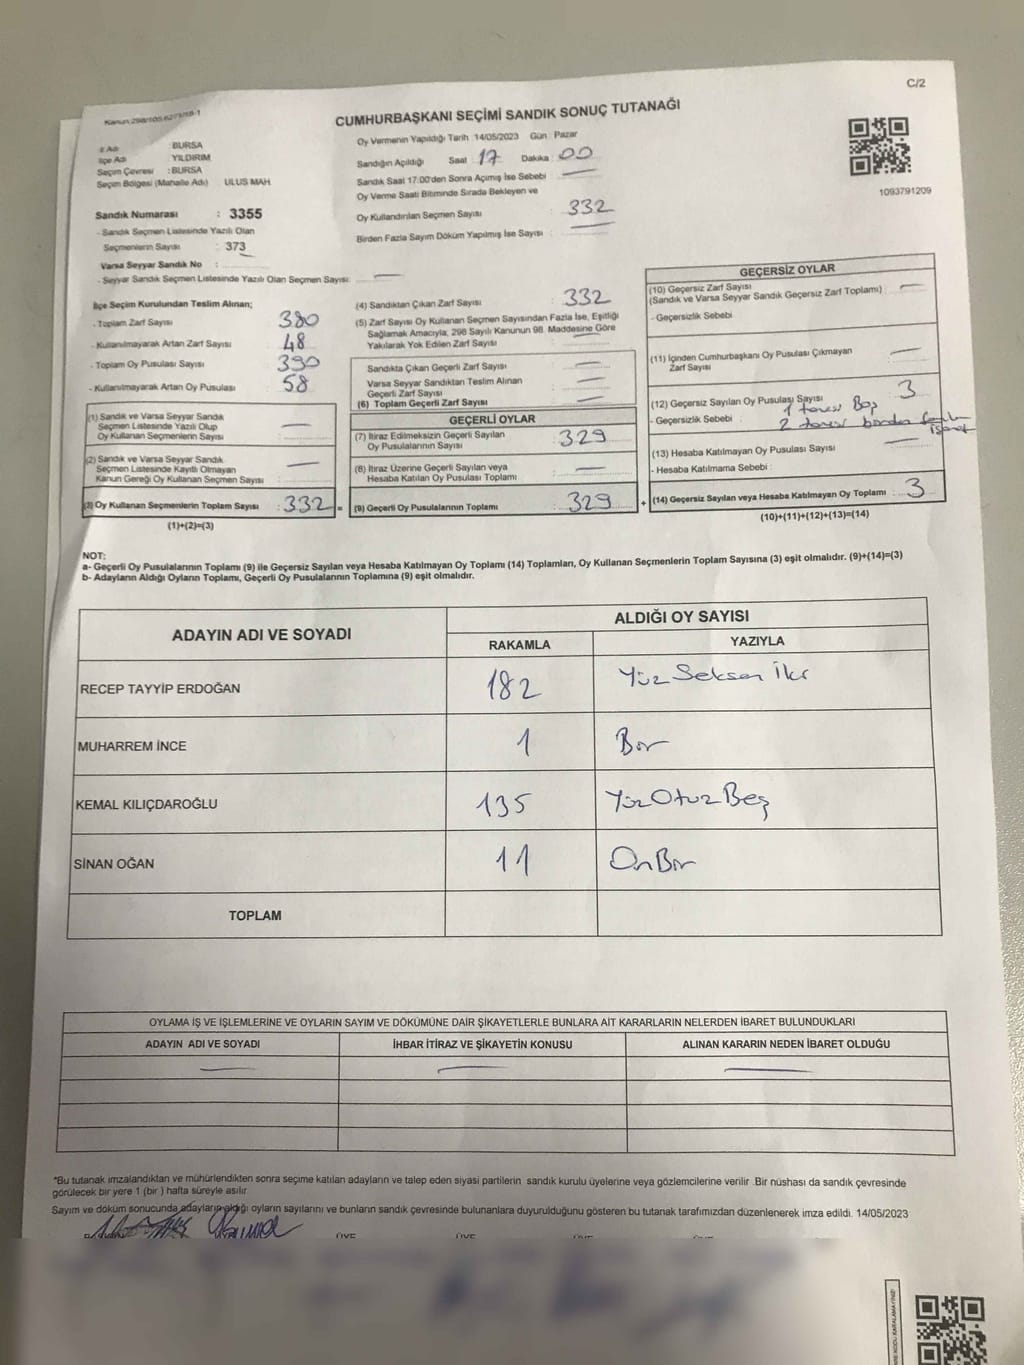 C/2
Kanun:298/105,6271/18-1
CUMHURBAŞKANI SEÇİMİ SANDIK SONUÇ TUTANAĞI
İl Adı : BURSA
İlçe Adı : YILDIRIM
Seçim Çevresi : BURSA
Seçim Bölgesi (Mahalle Adı) : ULUS MAH.
Oy Vermenin Yapıldığı Tarih 14/05/2023 Gün Pazar
Sandığın Açıldığı Saat 17 Dakika 00
Sandık Saat 17:00'den Sonra Açımış İse Sebebi : —
Oy Verme Saati Bitiminde Sırada Bekleyen ve
Oy Kullandırılan Seçmen Sayısı : 332
Birden Fazla Sayım Döküm Yapılmış İse Sayısı : —
1093791209
Sandık Numarası : 3355
- Sandık Seçmen Listesinde Yazılı Olan
Seçmenlerin Sayısı : 373
Varsa Seyyar Sandık No :
- Seyyar Sandık Seçmen Listesinde Yazılı Olan Seçmen Sayısı: —
İlçe Seçim Kurulundan Teslim Alınan;
- Toplam Zarf Sayısı : 380
- Kullanılmayarak Artan Zarf Sayısı : 48
- Toplam Oy Pusulası Sayısı : 390
- Kullanılmayarak Artan Oy Pusulası : 58
(1) Sandık ve Varsa Seyyar Sandık
Seçmen Listesinde Yazılı Olup
Oy Kullanan Seçmenlerin Sayısı : —
(2) Sandık ve Varsa Seyyar Sandık
Seçmen Listesinde Kayıtlı Olmayan
Kanun Gereği Oy Kullanan Seçmen Sayısı : —
(3) Oy Kullanan Seçmenlerin Toplam Sayısı : 332 =
(1)+(2)=(3)
(4) Sandıktan Çıkan Zarf Sayısı : 332
(5) Zarf Sayısı Oy Kullanan Seçmen Sayısından Fazla İse, Eşitliği
Sağlamak Amacıyla, 298 Sayılı Kanunun 98. Maddesine Göre
Yakılarak Yok Edilen Zarf Sayısı : —
Sandıkta Çıkan Geçerli Zarf Sayısı : —
Varsa Seyyar Sandıktan Teslim Alınan
Geçerli Zarf Sayısı : —
(6) Toplam Geçerli Zarf Sayısı : —
GEÇERLİ OYLAR
(7) İtiraz Edilmeksizin Geçerli Sayılan
Oy Pusulalarının Sayısı : 329
(8) İtiraz Üzerine Geçerli Sayılan veya
Hesaba Katılan Oy Pusulası Toplamı : —
(9) Geçerli Oy Pusulalarının Toplamı : 329 +
GEÇERSİZ OYLAR
(10) Geçersiz Zarf Sayısı : —
(Sandık ve Varsa Seyyar Sandık Geçersiz Zarf Toplamı)
- Geçersizlik Sebebi :
(11) İçinden Cumhurbaşkanı Oy Pusulası Çıkmayan
Zarf Sayısı : —
(12) Geçersiz Sayılan Oy Pusulası Sayısı : 3
- Geçersizlik Sebebi : 1 tanesi Boş
2 tanesi birden fazla işaret
(13) Hesaba Katılmayan Oy Pusulası Sayısı : —
- Hesaba Katılmama Sebebi :
(14) Geçersiz Sayılan veya Hesaba Katılmayan Oy Toplamı : 3
(10)+(11)+(12)+(13)=(14)
NOT:
a- Geçerli Oy Pusulalarının Toplamı (9) ile Geçersiz Sayılan veya Hesaba Katılmayan Oy Toplamı (14) Toplamları, Oy Kullanan Seçmenlerin Toplam Sayısına (3) eşit olmalıdır. (9)+(14)=(3)
b- Adayların Aldığı Oyların Toplamı, Geçerli Oy Pusulalarının Toplamına (9) eşit olmalıdır.
ADAYIN ADI VE SOYADI
ALDIĞI OY SAYISI
RAKAMLA YAZIYLA
RECEP TAYYİP ERDOĞAN 182 Yüz Seksen İki
MUHARREM İNCE 1 Bir
KEMAL KILIÇDAROĞLU 135 Yüz Otuz Beş
SİNAN OĞAN 11 On Bir
TOPLAM
OYLAMA İŞ VE İŞLEMLERİNE VE OYLARIN SAYIM VE DÖKÜMÜNE DAİR ŞİKAYETLERLE BUNLARA AİT KARARLARIN NELERDEN İBARET BULUNDUKLARI
ADAYIN ADI VE SOYADI İHBAR İTİRAZ VE ŞİKAYETİN KONUSU ALINAN KARARIN NEDEN İBARET OLDUĞU
— — —
*Bu tutanak imzalandıktan ve mühürlendikten sonra seçime katılan adayların ve talep eden siyasi partilerin sandık kurulu üyelerine veya gözlemcilerine verilir .Bir nüshası da sandık çevresinde
görülecek bir yere 1 (bir ) hafta süreyle asılır.
Sayım ve döküm sonucunda adayların aldığı oyların sayılarını ve bunların sandık çevresinde bulunanlara duyurulduğunu gösteren bu tutanak tarafımızdan düzenlenerek imza edildi. 14/05/2023
ÜYE ÜYE ÜYE ÜYE